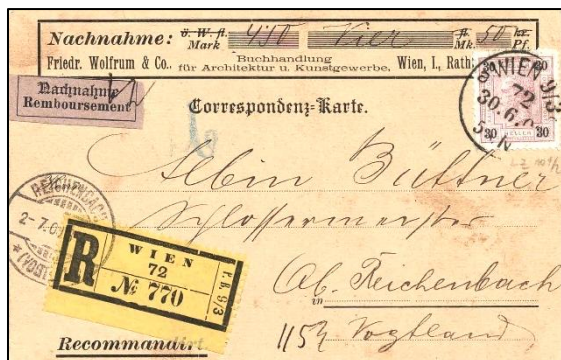 Nachnahme: ö. W. fl. Mark 450 Vier fl. Mk. 50 kr. Pf.
Friedr. Wolfrum & Co., Buchhandlung für Architektur u. Kunstgewerbe, Wien, I., Rath
Nachnahme
Remboursement
Correspondenz-Karte.
WIEN 9/3
72
30.6.0
30 HELLER 30
Albin Büttner
Schlossermeister
REICHENBACH
2-7.00
(VOGTL)
R WIEN
72
№ 770
r.h. 9/3
in Reichenbach
1153 Vogtland
Recommandirt.